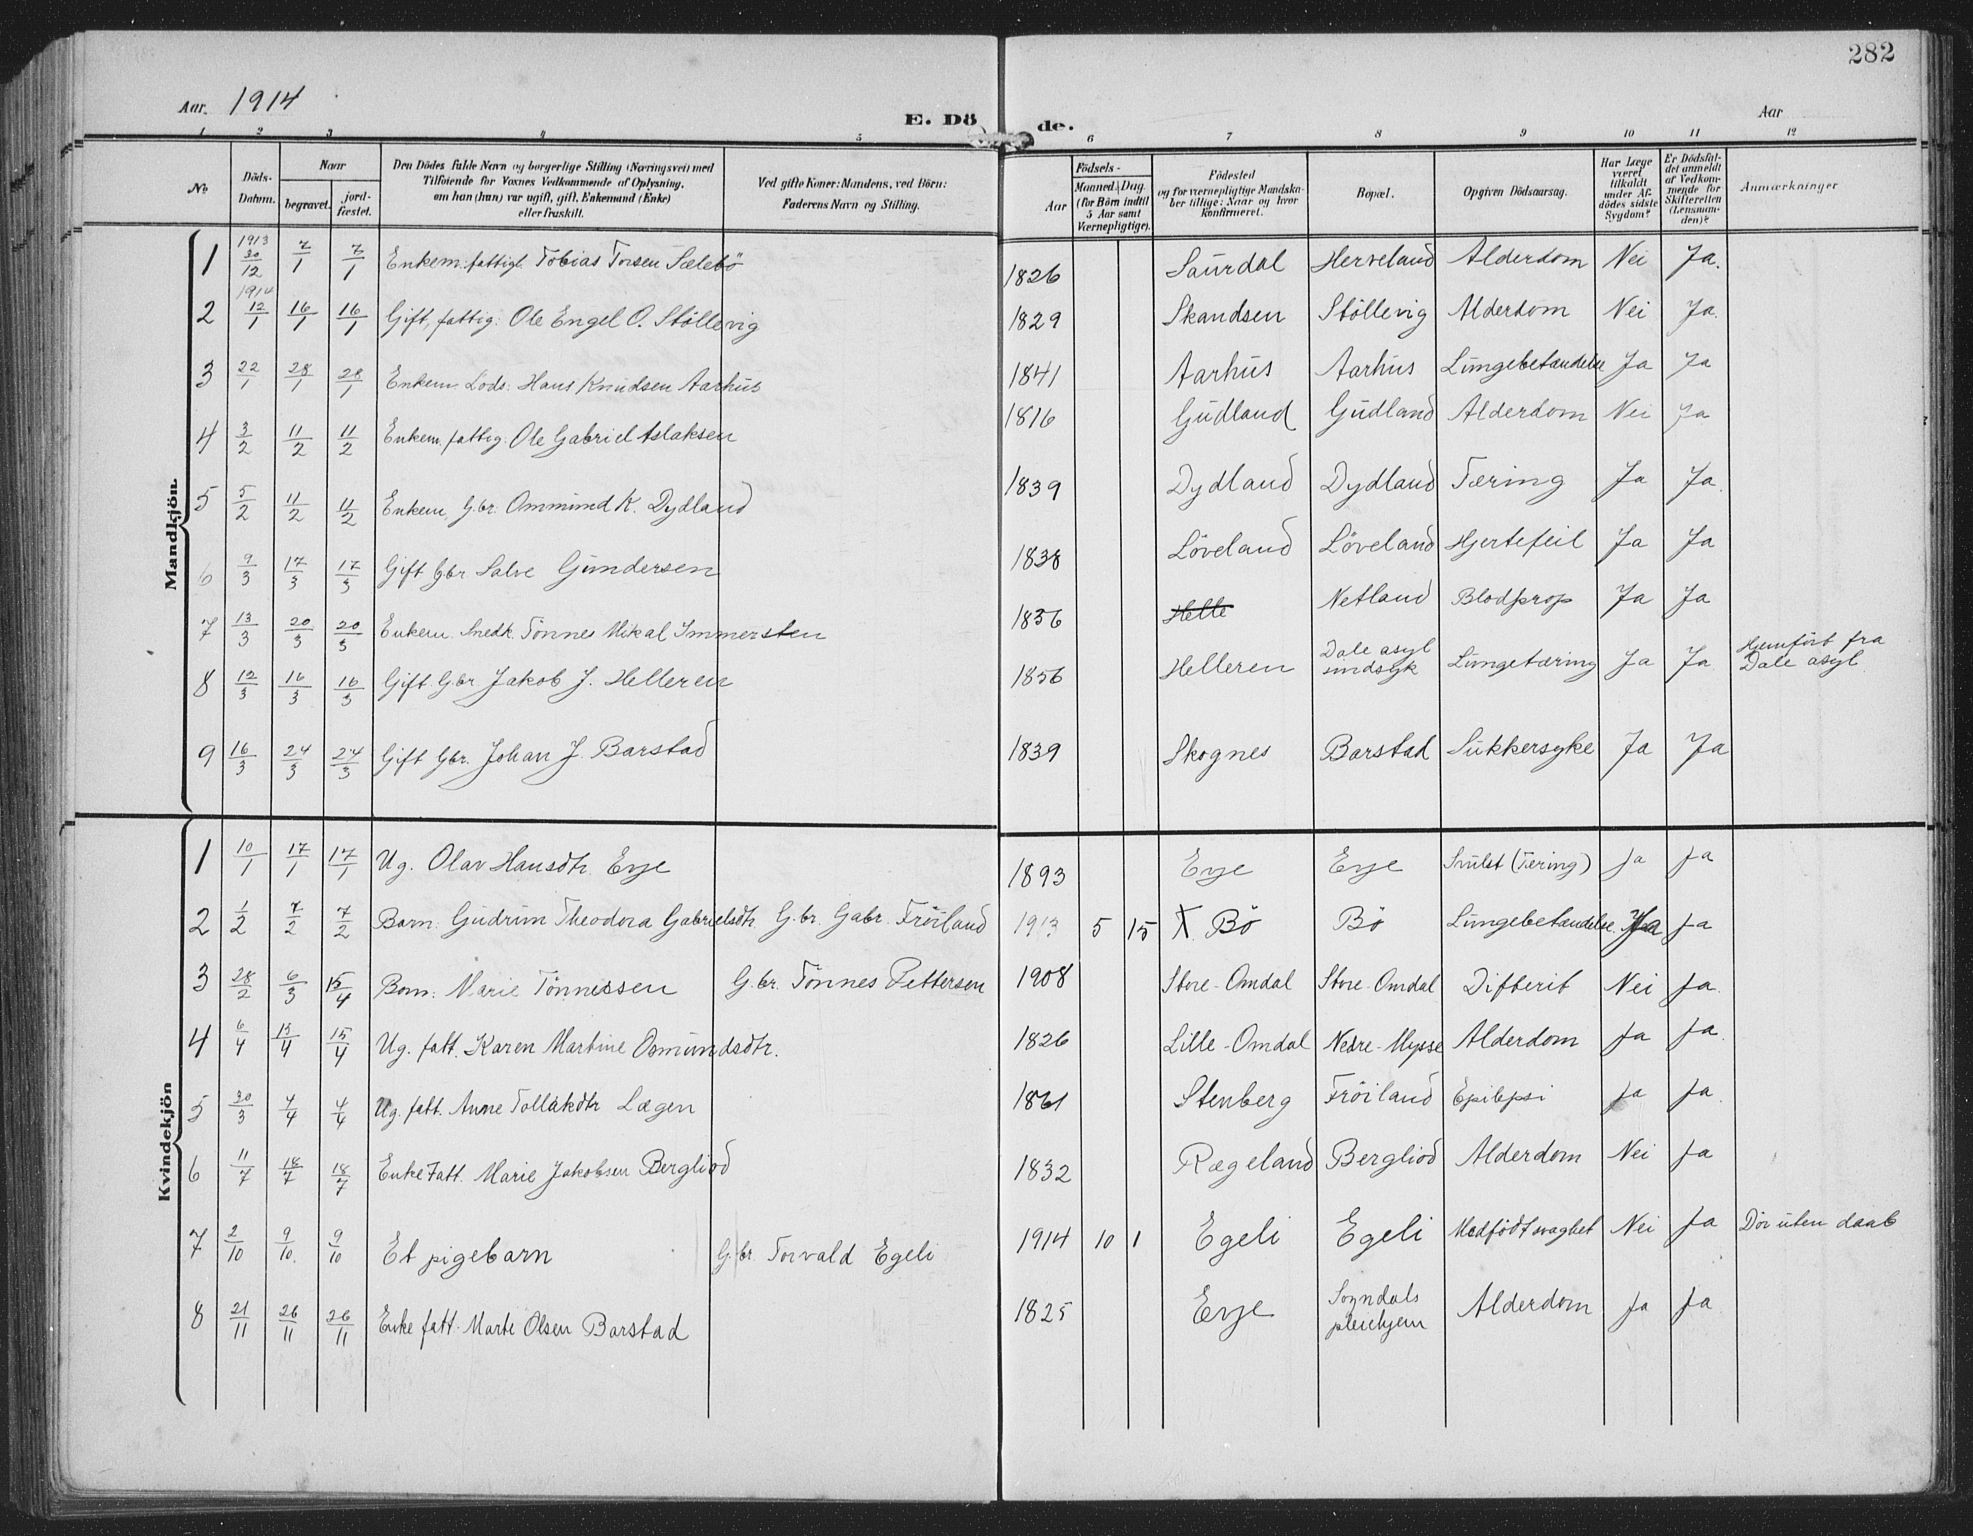 282
Aar. 1914
E. Dö de.
Aar
1 2 3 4 5 6 7 8 9 10 11 12
No
Döds-Datum.
Naar
begravet.
jord-fæstet.
Den Dödes fulde Navn og borgerlige Stilling (Næringsvei) med
Tilföiende for Voxnes Vedkommende af Oplysning,
om han (hun) var ugift, gift, Enkemand (Enke)
eller fraskilt.
Ved gifte Koner: Mandens, ved Börn:
Faderens Navn og Stilling.
Aar
Födsels-
Maaned. Dag.
(for Börn indtil
5 Aar samt
Værnepligtige).
Födested
og for værnepligtige Mandska-
ber tillige: Naar og hvor
konfirmeret.
Bopæl.
Opgiven Dödsaarsag.
Har Læge
været
tilkaldt
under Af-
dödes sidste
Sygdom?
Er Dödsfal-
det anmeldt
af Vedkom-
mende for
Skifteretten
(Lensman-
den)?
Anmærkninger
Mandkjön.
1 1913 30/12 7/1 7/1 Enkem: fattigl. Tobias Torsen Sælebö 1826 Saurdal Herveland Alderdom Nei Ja.
2 1914 12/1 16/1 16/1 Gift, fattig: Ole Engel O. Stöllevig 1829 Skandsen Stöllevig Alderdom Nei Ja.
3 22/1 28/1 28/1 Enkem Lods: Hans Knudsen Aarhus 1841 Aarhus Aarhus Lungebetændelse Ja Ja
4 3/2 11/2 11/2 Enkem. fattig: Ole Gabriel Aslaksen 1816 Gudland Gudland Alderdom Nei Ja
5 5/2 11/2 11/2 Enkem, Gbr. Ommund K. Dydland 1839 Dydland Dydland Tæring Ja Ja.
6 9/3 17/3 17/3 Gift Gbr Salve Gundersen 1838 Löveland Löveland Hjertefeil Ja Ja
7 13/3 20/3 20/3 Enkem. Snedk. Tönnes Mikal Immersten 1836 Helle Netland Blodprop Ja Ja
8 12/3 16/3 16/3 Gift Gbr Jakob J. Helleren 1856 Helleren Dale asyl sindsyk Lungetæring Ja Ja Hjemfört fra Dale asyl
9 16/3 24/3 24/3 Gift Gbr. Johan J. Barstad 1839 Skognes Barstad Sukkersyke Ja Ja
Kvindekjön
1 10/1 17/1 17/1 Ug. Olav Hansdtr. Evje 1893 Evje Evje Svulst (Tæring) Ja Ja
2 1/2 7/2 7/2 Barn: Gudrun Theodora Gabrielsdtr. G.br. Gabr. Fröiland 1913 5 15 X. Bö Bö Lungebetændelse Ja Ja
3 28/2 6/3 15/4 Barn: Marie Tönnessen G.br. Tönnes Pettersen 1908 Store-Omdal Store-Omdal Difterit Nei Ja.
4 6/4 15/4 15/4 Ug. fatt. Karen Martine Osmundsdtr. 1826 Lille-Omdal Nedre-Mysse Alderdom Ja Ja.
5 30/3 4/4 4/4 Ug. fatt. Anne Tollakdtr Lægen 1861 Stenberg Fröiland Epilepsi Ja Ja.
6 11/7 18/7 18/7 Enke Fatt. Marie Jakobsen Bergliod 1832 Rægeland Bergliod Alderdom Nei Ja
7 2/10 9/10. 9/10 Et pigebarn G.br. Torvald Egeli 1914 10 1 Egeli Egeli Medfödt svaghet Nei Ja Död uten daab
8 21/11 26/11 26/11 Enke fatt. Marte Olsen Barstad 1825 Evje Sogndals pleiehjem Alderdom Ja Ja